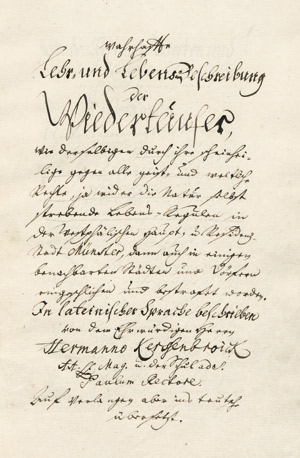 Wahrhaffte
Lehr, und Lebens Beschreibung
der
Wiedertäufer,
wie derselbiger durch ihre scheinhei-
lige gegen alle geist- und weltliche
Rechte ja wider die Natur selbst
strebende Lebens-Regulen in
der Westphälischen Haubt, u. Residenz-
Stadt Münster, dann auch in einigen
benachbarten Städten und Dörfern
eingeschlichen und bestraft worden.
In lateinischer Sprache beschrieben
von dem Ehrwürdigen Herrn
Hermanno Kerssenbroick
Art. lib. Mag. u. der Schulad.
Paulum Rectore.
Auf Verlangen aber ins teutsche
übersetzt.